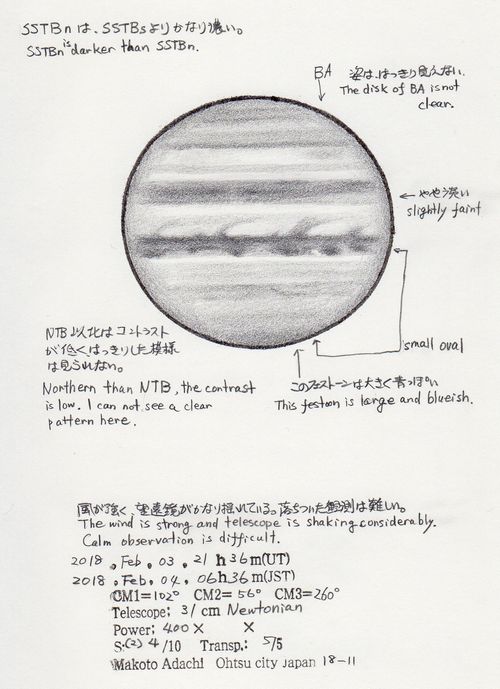 SSTBnは、SSTBsよりかなり濃い。
SSTBn is darker than SSTBn.
BA 姿は、はっきり見えない。
The disk of BA is not
clear.
← やや淡い
slightly faint
small oval
NTB以北はコントラスト
が低くはっきりした模様
は見られない。
Northern than NTB, the contrast
is low. I can not see a clear
pattern here.
このフェストーンは大きく青っぽい
This festoon is large and blueish.
風が強く、望遠鏡がかなり揺れている。落ちついた観測は難しい。
The wind is strong and telescope is shaking considerably.
Calm observation is difficult.
2018 , Feb , 03 , 21 h 36 m(UT)
2018 , Feb , 04 , 06 h 36 m(JST)
CM1=102° CM2= 56° CM3=260°
Telescope: 31 cm Newtonian
Power: 400 × ×
S:(2) 4 /10 Transp.: 5/5
Makoto Adachi Ohtsu city Japan 18-11